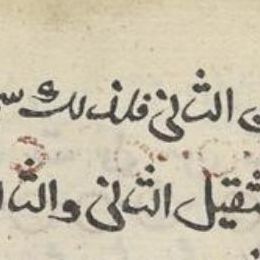 الثاني فلذلك
ثقيل الثاني والثا